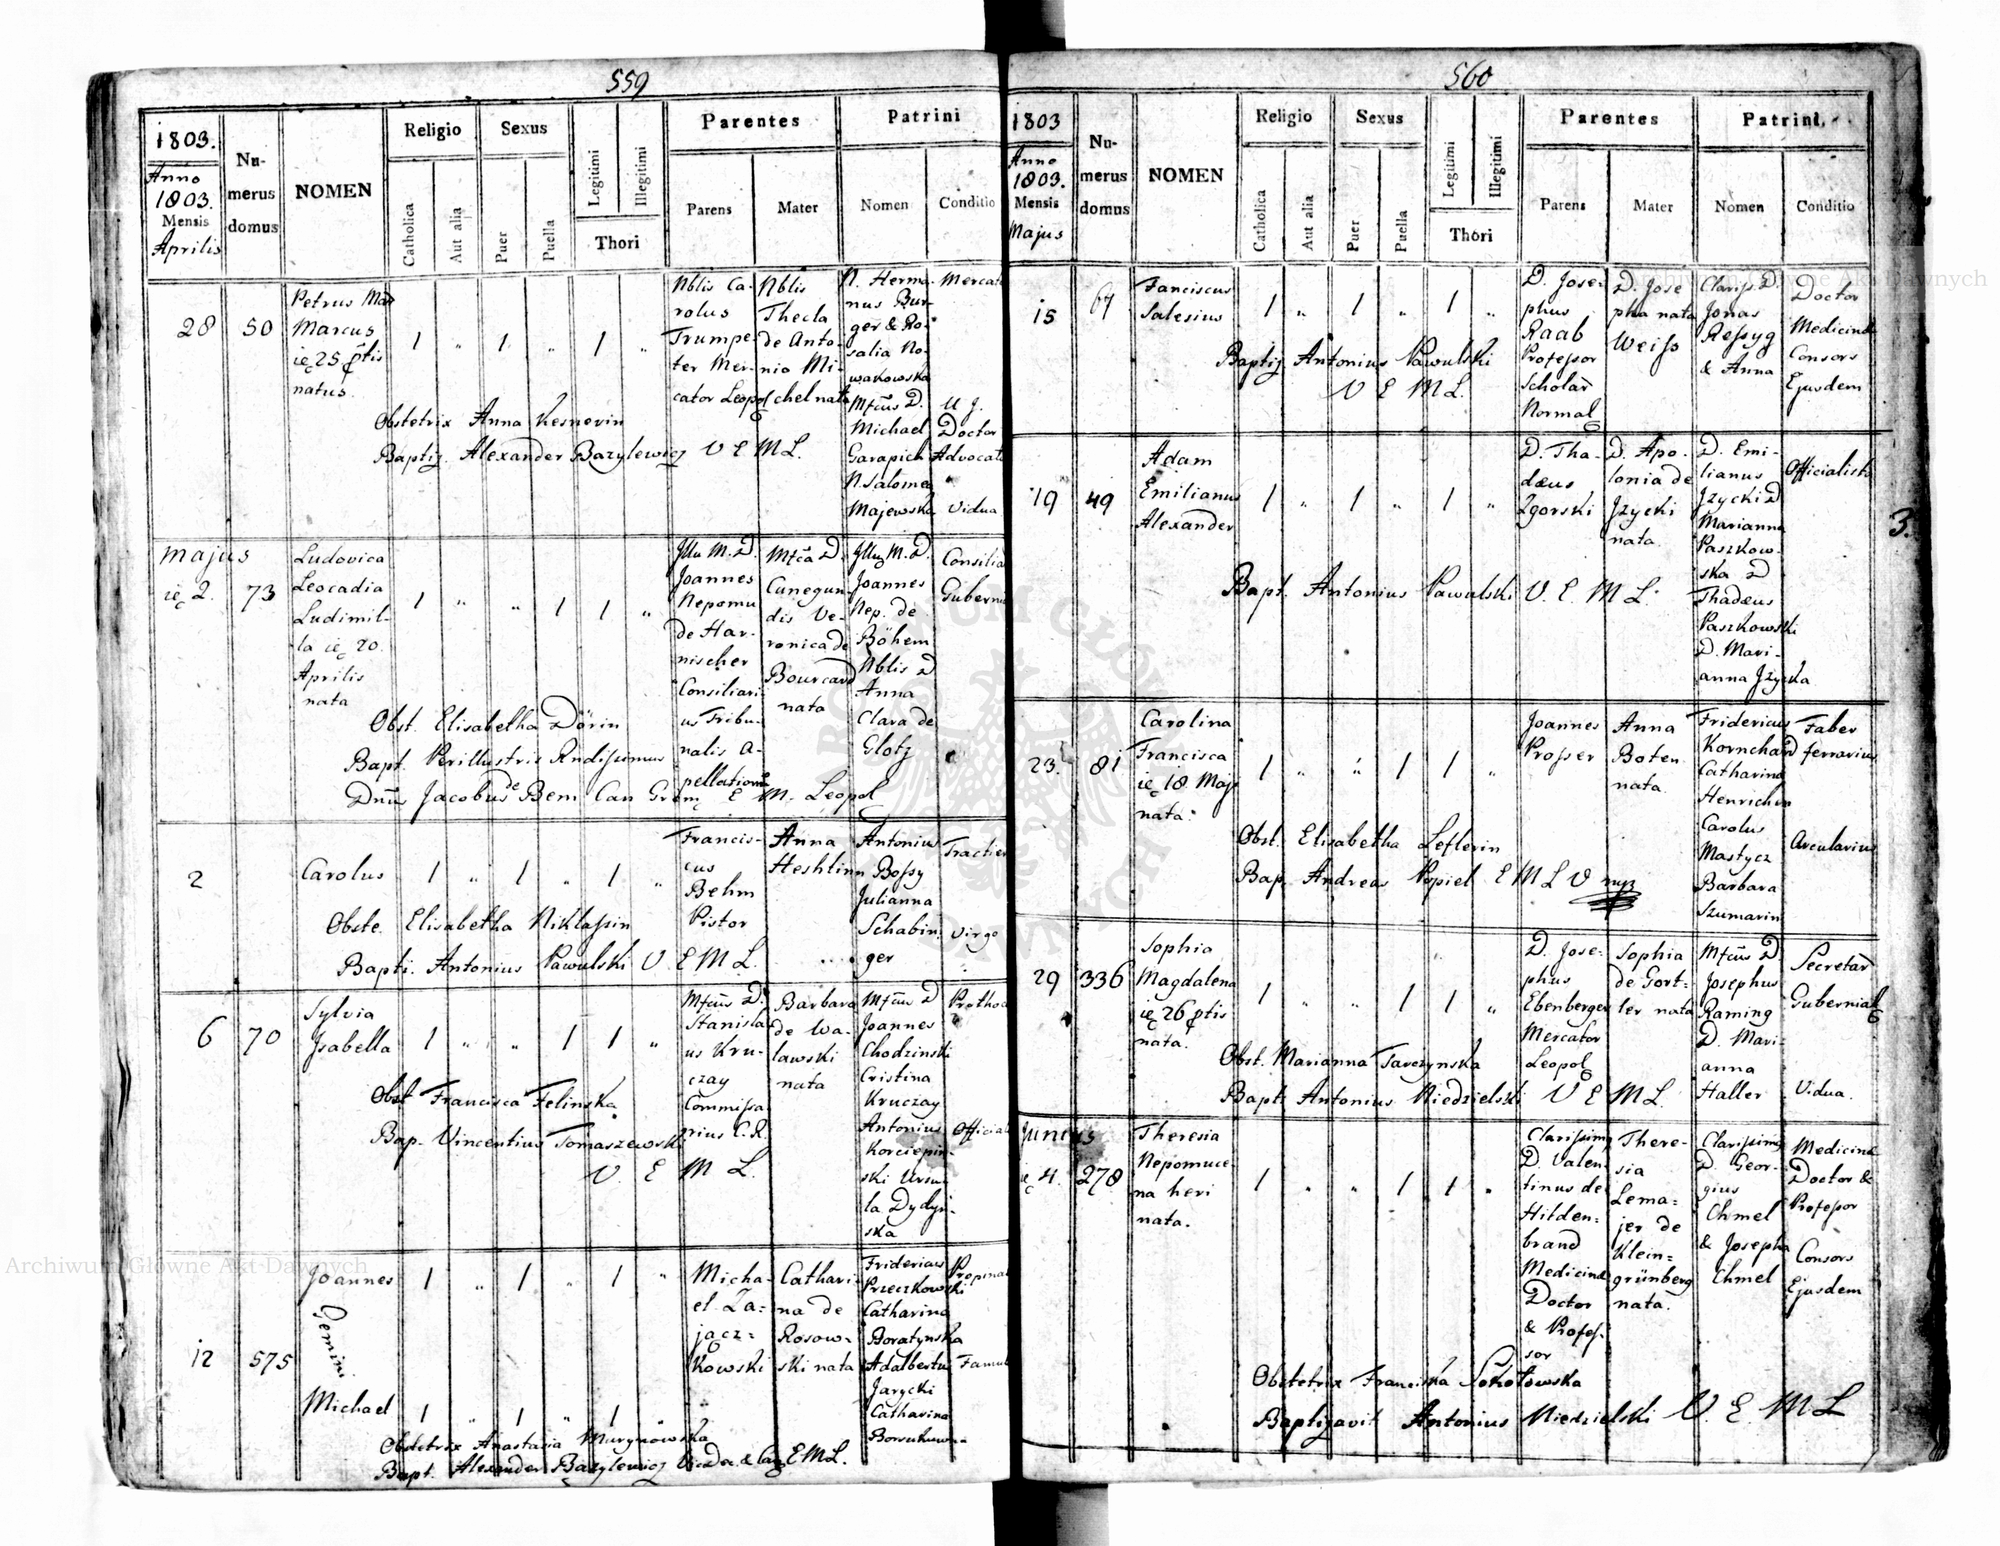 559
1803.
Anno
1803.
Mensis
Aprilis
Nu-
merus
domus
NOMEN
Religio
Catholica
Aut alia
Sexus
Puer
Puella
Legitimi
Illegitimi
Thori
Parentes
Parens
Mater
Patrini
Nomen
Conditio
28
50
Petrus
Marcus
natus.
1 " 1 " 1 "
Nblis Ca-
rolus
Trumpe-
ter Mer-
cator Leopol
Nblis
Thecla
de Anto-
nio Mi-
chel nata
N. Herma-
nus Bur-
ger & Ro-
salia No-
wakowska
Michael
Garapich
N. Salomea
Majewska
U J.
Doctor
Vidua
Obstetrix Anna Kesnerin
Baptiz. Alexander Bazylewicz V E M L.
Majus
2.
73
Ludovica
Leocadia
Ludimil-
la 20.
Aprilis
nata
1 " " 1 1 "
Joannes
Nepomu
de Har-
nischer
Consiliari-
us Tribu-
nalis A-
Cunegun-
dis Ve-
ronica de
Bourcard
nata
Joannes
Nep. de
Böhem
Nblis D
Anna
Clara de
Glotz
Obst. Elisabetha Dörin
Bapt. Perillustris Rndissimus
Jacobus de Bem Can M. Leopol
2
Carolus
1 " 1 " 1 "
Francis-
cus
Behm
Pistor
Anna
Heshlinn
Antonius
Bossy
Julianna
Schabin-
ger
Virgo
Obste. Elisabetha Niklassin
Bapti. Antonius Pawulski V E M L.
6
70
Sylvia
Isabella
1 " " 1 1 "
Stanisla
us Kru-
czay
Commissa
rius C.R.
Barbara
de Wa-
lawski
nata
Joannes
Chodzinski
Cristina
Kruczay
Antonius
Korciepin-
ski Ursu
la Dydyn-
ska
Obst Francisca Felinska
Bap. Vincentius Tomaszewski
V. E M L.
12
575
Joannes
Gemini
Michael
1 " 1 " 1 "
1 " 1 " 1 "
Micha-
el Za-
jącz-
kowski
Cathari-
na de
Rosow-
ski nata
Fridericus
Przeczkowski
Catharina
Boratynska
Adalbertus
Jarycki
Catharina
Obstetrix Anastasia Murynowska
Bapt. Alexander Bazylewicz E M L.
560
1803
Anno
1803.
Mensis
Majus
Nu-
merus
domus
NOMEN
Religio
Catholica
Aut alia
Sexus
Puer
Puella
Legitimi
Illegitimi
Thori
Parentes
Parens
Mater
Patrini
Nomen
Conditio
15
67
Fanciscus
Salesius
1 " 1 " 1 "
D. Jose-
phus
Raab
Professor
Normal
D. Jose
pha nata
Weiss
Jonas
& Anna
Doctor
Medicinæ
Consors
Ejusdem
Baptiz Antonius Pawulski
V E M L.
19
49
Adam
Emilianus
Alexander
1 " 1 " 1 "
D. Tha-
dæus
Zgorski
D. Apo-
lonia de
Jzycki
nata.
D. Emi-
lianus
Jzycki D
Marianna
Paszkow-
ska D
Thadæus
Paszkowski
D. Mari-
anna Jzycka
Bapt. Antonius Pawulski V. E M L.
3.
23.
81
Carolina
Francisca
18 Maj
nata.
1 " " 1 1 "
Joannes
Prosser
Anna
Boten
nata.
Fridericus
Catharina
Carolus
Mastycz
Barbara
Szumarin
Faber
ferrarius
Arcularius
Obst. Elisabetha Leflerin
Bap. Andreas Popiel E M L V mpp
29
336
Sophia
Magdalena
nata.
1 " " 1 1 "
D. Jose-
phus
Ebenberger
Mercator
Leopol
Sophia
de Gort-
ler nata
Josephus
Raming
D. Mari-
anna
Haller
Vidua.
Obst. Marianna Tarczynska
Bapt. Antonius Niedzielski V E M L.
Junius
4.
278
Theresia
Nepomuce-
na heri
nata.
1 " " 1 1 "
D. Valen-
tinus de
Hilden-
brand
Medicinæ
Doctor
& Profes-
sor
There-
sia
Lema-
jer de
Klein-
grünberg
nata.
D. Geor-
gius
Chmel
& Josepha
Chmel
Medicinæ
Doctor &
Professor
Consors
Ejusdem
Obstetrix Franciska Sokołowska
Baptizavit Antonius Niedzielski V. E M L
Archiwum Główne Akt Dawnych
Archiwum Główne Akt Dawnych